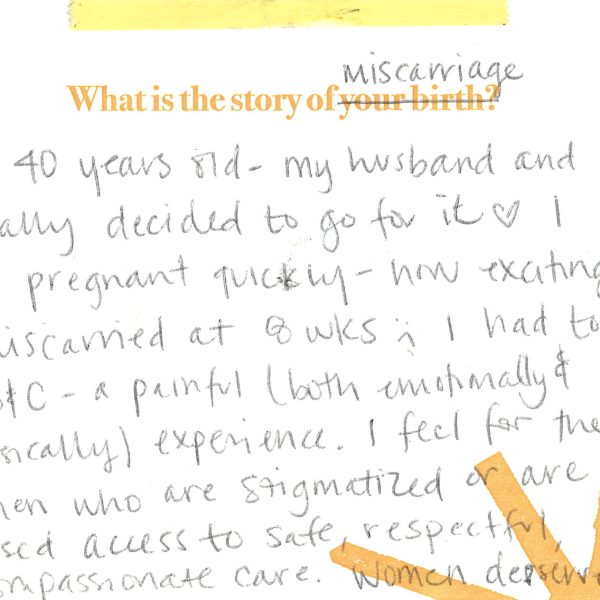 miscarriage
What is the story of your birth?
40 years old - my husband and
ally decided to go for it ♡ I
pregnant quickly - how exciting
iscarried at 8 wks :( I had to
&C - a painful (both emotionally &
sically) experience. I feel for the
men who are stigmatized or are
sed access to safe, respectful,
ompassionate care. Women deserve